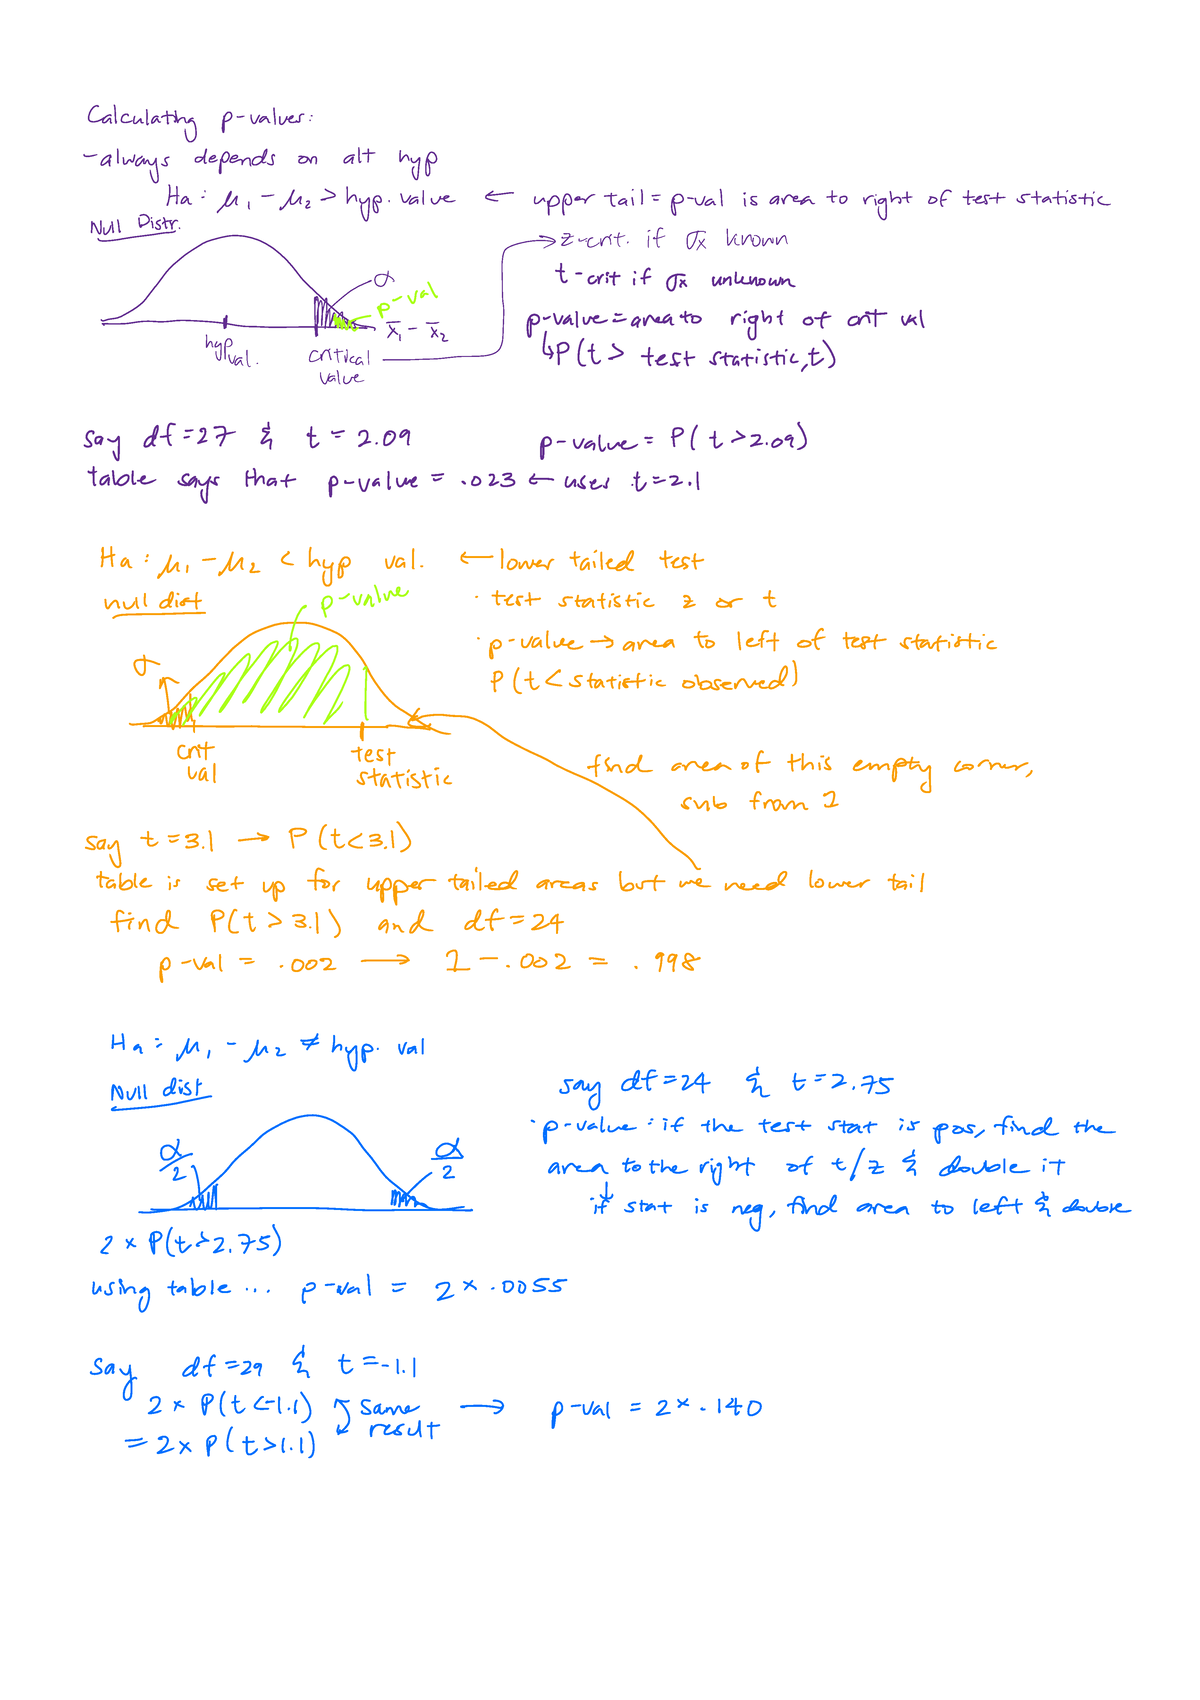 Calculating p-values:
-always depends on alt hyp
Ha: μ₁ - μ₂ > hyp. value ← upper tail = p-val is area to right of test statistic
Null Distr.
→ z-crit. if σx known
t-crit if σx unknown
α
p-val
x̄₁ - x̄₂
p-value = area to right of crit val
↳ P(t > test statistic, t)
hyp val.
critical value
say df = 27 & t = 2.09 p-value = P(t > 2.09)
table says that p-value = .023 ← uses t = 2.1
Ha: μ₁ - μ₂ < hyp val. ← lower tailed test
null dist
p-value
· test statistic z or t
· p-value → area to left of test statistic
P(t < statistic observed)
σ
crit val
test statistic
find area of this empty corner,
sub from 1
say t = 3.1 → P(t < 3.1)
table is set up for upper tailed areas but we need lower tail
find P(t > 3.1) and df = 24
p-val = .002 → 1 - .002 = .998
Ha: μ₁ - μ₂ ≠ hyp. val
Null dist
say df = 24 & t = 2.75
· p-value: if the test stat is pos, find the
area to the right of t/z & double it
↓
if stat is neg, find area to left & double
α/2
α/2
2 × P(t > 2.75)
using table ... p-val = 2 × .0055
Say df = 29 & t = -1.1
2 × P(t < -1.1) same result → p-val = 2 × .140
= 2 × P(t > 1.1)